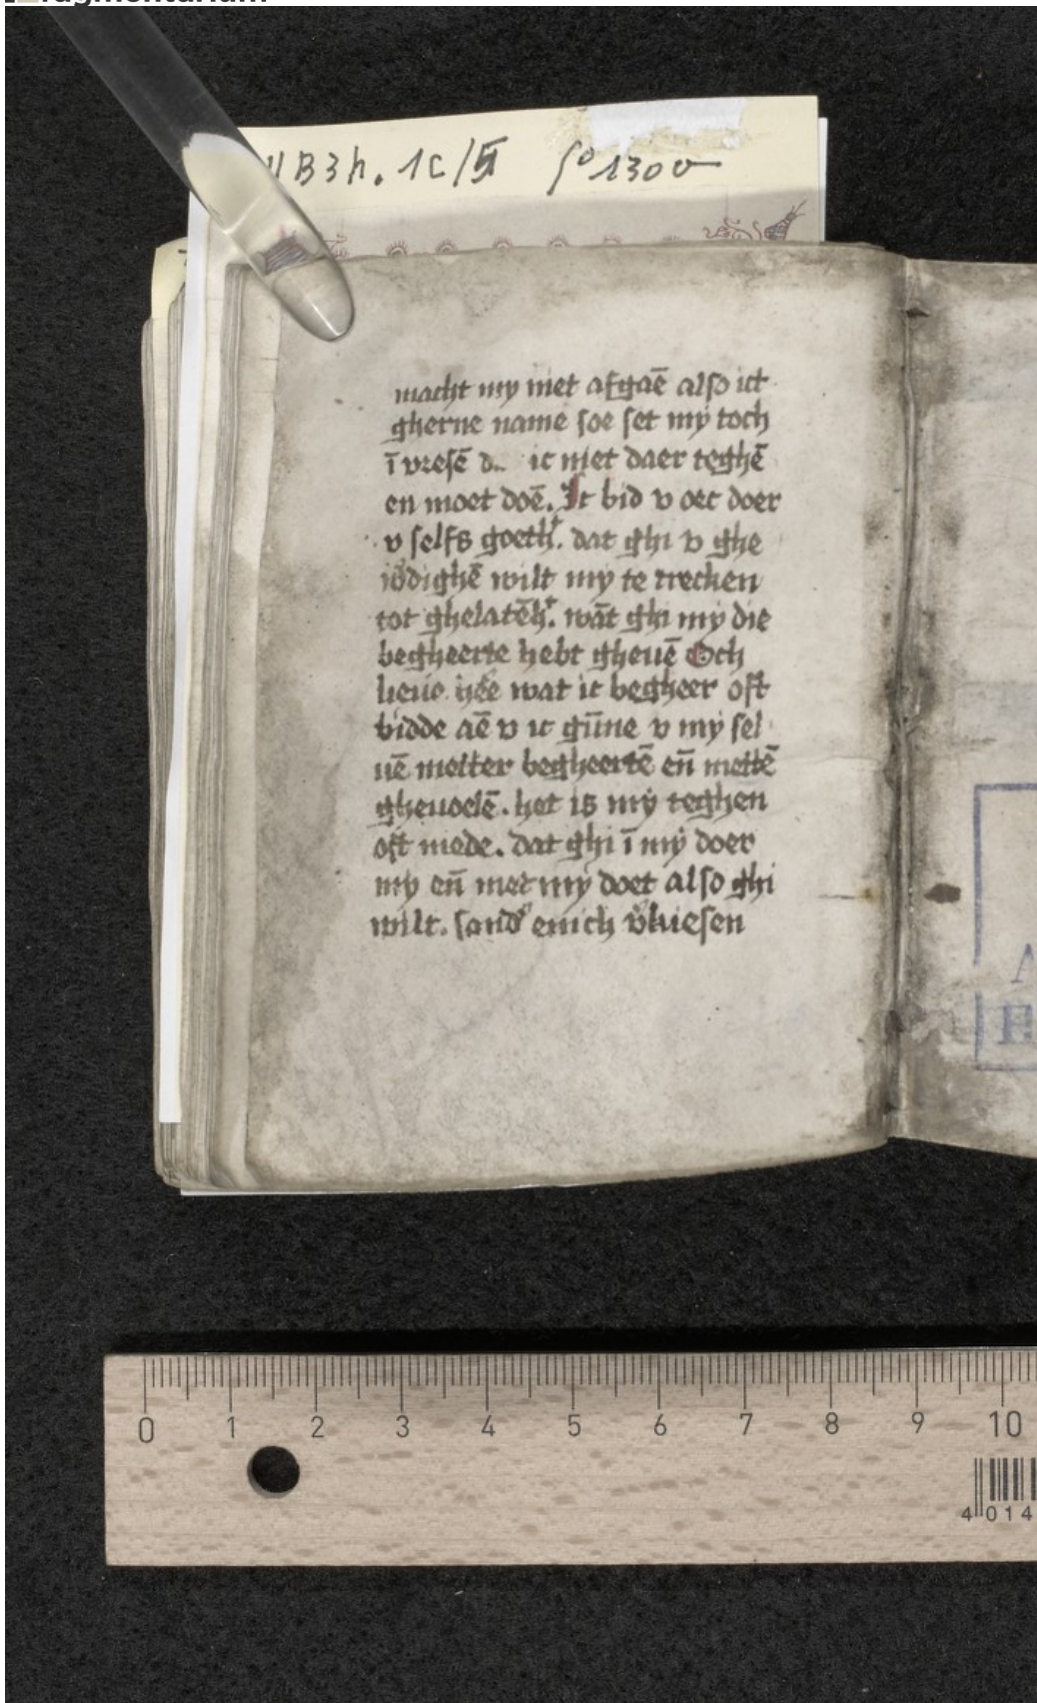 fragmentarium
B3h. 1C/5 f° 130v
macht my niet afgaē also ict
gherne name soe set mÿ toch
ī vresē d.. ic niet daer teghē
en moet doē. Ic bid v oec doer
v selfs goeth. dat ghi v ghe
dighē wilt my te trecken
tot ghelatēh. wāt ghi mÿ die
begheerte hebt gheuē Och
lieue wat ic begheer oft
bidde aē v ic gūne v mÿ sel
uē metter begheertē en̄ mettē
gheuoelē. het is mÿ teghen
oft mede. dat ghi ī mÿ doer
mÿ en̄ met mÿ doet also ghi
wilt. sond' enich v'kiesen
A
H
0 1 2 3 4 5 6 7 8 9 10
4 014